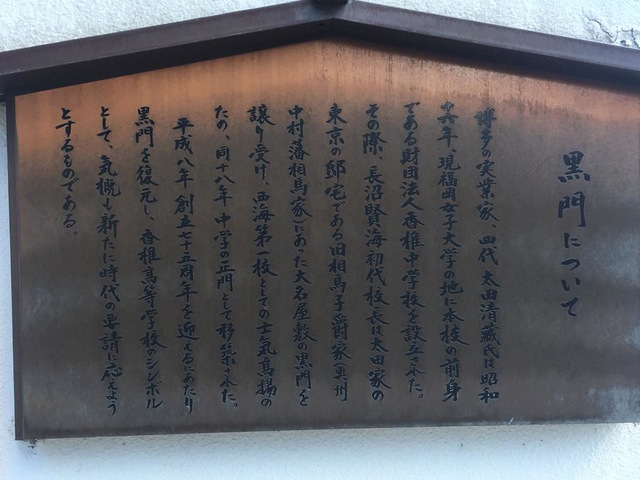 黒門について
博多の実業家、四代 太田清蔵氏は昭和
六年、現福岡女子大学の地に本校の前身
である財団法人香椎中学校を設立された。
その際、長沼賢海初代校長は太田家の
東京の邸宅である旧相馬子爵家(奥州
中村藩相馬家)にあった大名屋敷の黒門を
譲り受け、西海第一校としての士気高揚の
ため、同十八年 中学の正門として移築された。
平成八年 創立七十五周年を迎えるにあたり
黒門を復元し、香椎高等学校のシンボル
として、気概も新たに時代の要請に応えよう
とするものである。